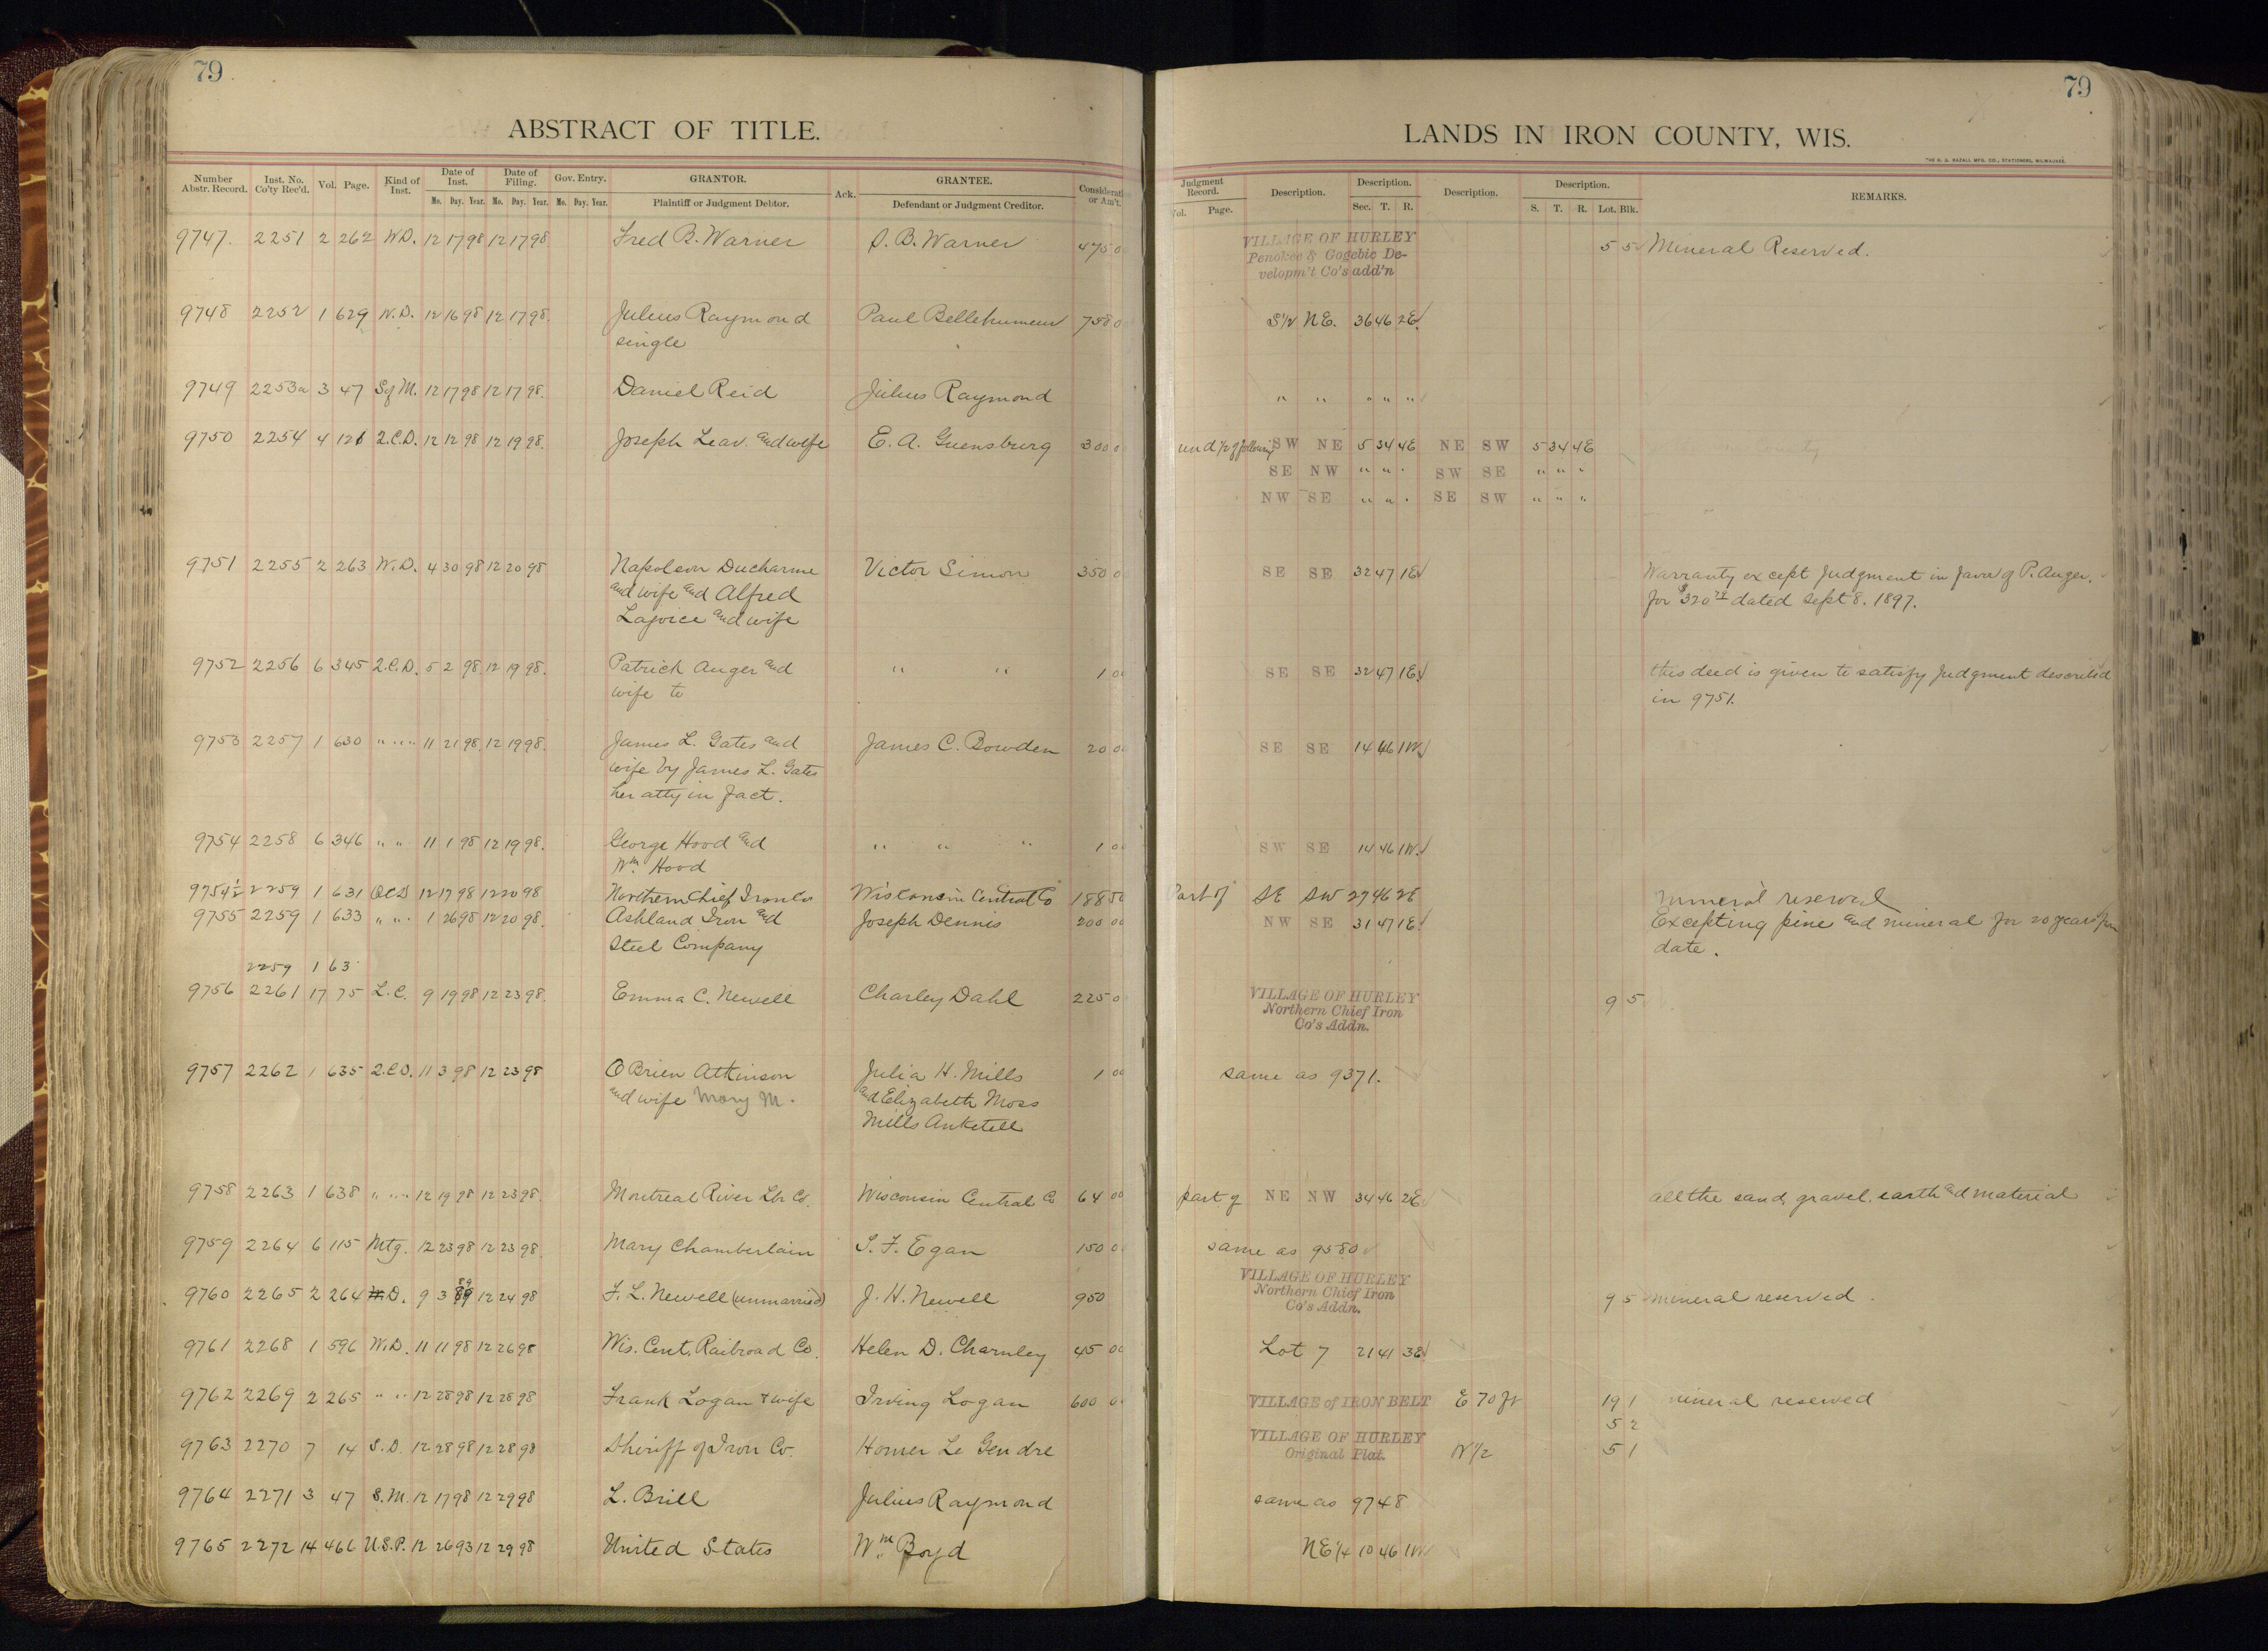 79
79
ABSTRACT OF TITLE.
LANDS IN IRON COUNTY, WIS.
THE H. G. RAZALL MFG. CO., STATIONERS, MILWAUKEE.
Number Abstr. Record. Inst. No. Co'ty Rec'd. Vol. Page. Kind of Inst. Date of Inst. Mo. Day. Year. Date of Filing. Mo. Day. Year. Gov. Entry. Mo. Day. Year. GRANTOR. Plaintiff or Judgment Debtor. Ack. GRANTEE. Defendant or Judgment Creditor. Consideration or Am't.
Judgment Record. Vol. Page. Description. Description. Sec. T. R. Description. Description. S. T. R. Lot. Blk. REMARKS.
9747. 2251 2 262 W.D. 12 17 98 12 17 98 Fred B. Warner S. B. Warner 475 00 VILLAGE OF HURLEY 5 5 Mineral Reserved.
Penokee & Gogebic De-
velopm't Co's add'n
9748 2252 1 629 W.D. 12 16 98 12 17 98. Julius Raymond Paul Bellehumeur 758 0 S1/2 NE. 36 46 2E.
single
9749 2253a 3 47 Sf M. 12 17 98 12 17 98. Daniel Reid Julius Raymond " " " " "
9750 2254 4 121 Q.C.D. 12 12 98 12 19 98. Joseph Leav. and wife E. A. Guensburg 300 0 und 1/2 of following SW NE 5 34 4E NE SW 5 34 4E
SE NW " " " SW SE " " "
NW SE " " " SE SW " " "
9751 2255 2 263 W.D. 4 30 98 12 20 98 Napoleon Ducharme Victor Simon 350 0 SE SE 32 47 1E Warranty except Judgment in favor of P. Auger.
and wife and Alfred for $320 dated Sept 8. 1897.
Lajoice and wife
9752 2256 6 345 Q.C.D. 5 2 98. 12 19 98. Patrick Auger and " " 1 00 SE SE 32 47 1E this deed is given to satisfy Judgment described
wife to in 9751.
9753 2257 1 630 " " " 11 21 98. 12 19 98. James L. Gates and James C. Bowden 20 0 SE SE 14 46 1W
wife by James L. Gates
her atty in fact.
9754 2258 6 346 " " 11 1 98 12 19 98. George Hood and " " " 1 00 SW SE 14 46 1W.
Wm. Hood
9754 1/2 2259 1 631 QCD 12 17 98 12 20 98 Northern Chief Iron Co Wisconsin Central Co 188 50 Part of SE SW 27 46 2E Mineral reserved
9755 2259 1 633 " " 1 26 98 12 20 98. Ashland Iron and Joseph Dennis 200 00 NW SE 31 47 1E Excepting pine and mineral for 20 years from
Steel Company date.
2259 1 63
9756 2261 17 75 L.C. 9 19 98 12 23 98. Emma C. Newell Charley Dahl 225 0 VILLAGE OF HURLEY 9 5
Northern Chief Iron
Co's Addn.
9757 2262 1 635 Q.C.D. 11 3 98 12 23 98 O Brien Atkinson Julia H. Mills 1 00 same as 9371.
and wife Mary M. and Elizabeth Moss
Mills Anketell
9758 2263 1 638 " " " 12 19 98 12 23 98. Montreal River Lbr Co. Wisconsin Central Co 64 00 part of NE NW 34 46 2E all the sand, gravel, earth and material
9759 2264 6 115 Mtg. 12 23 98 12 23 98. Mary Chamberlain S. F. Egan 150 0 same as 9580
9760 2265 2 264 W.D. 9 3 89 12 24 98 F. L. Newell (unmarried) J. H. Newell 950 VILLAGE OF HURLEY 9 5 mineral reserved.
Northern Chief Iron
Co's Addn.
9761 2268 1 596 W.D. 11 11 98 12 26 98 Wis. Cent. Railroad Co. Helen D. Charnley 45 00 Lot 7 21 41 3E
9762 2269 2 265 " " 12 28 98 12 28 98 Frank Logan & wife Irving Logan 600 0 VILLAGE of IRON BELT E 70 ft 19 1 mineral reserved
5 2
9763 2270 7 14 S.D. 12 28 98 12 28 98 Sheriff of Iron Co. Homer Le Gendre VILLAGE OF HURLEY W 1/2 5 1
Original Plat.
9764 2271 3 47 S.M. 12 17 98 12 29 98 L. Brill Julius Raymond same as 9748
9765 2272 14 466 U.S.P. 12 26 93 12 29 98 United States Wm Boyd NE 1/4 10 46 1W